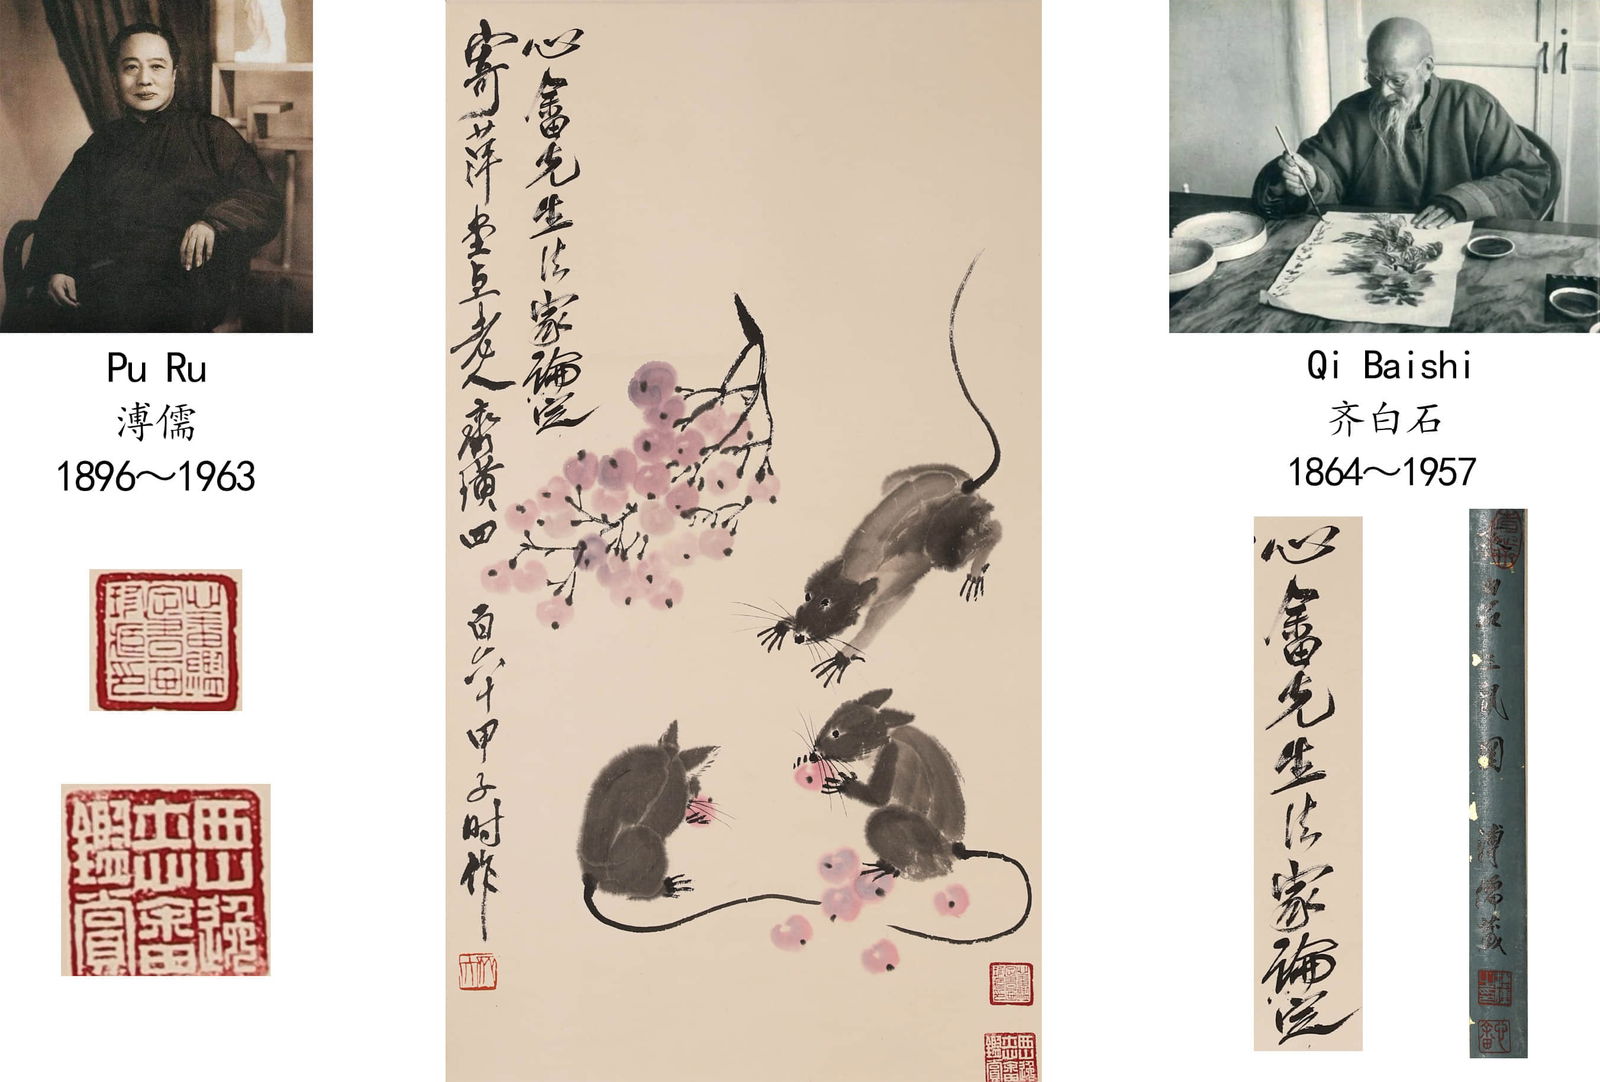 Pu Ru
溥儒
1896～1963
心畬先生法家論定
寄萍堂上老人齊璜四百六十甲子时作
Qi Baishi
齐白石
1864～1957
心畬先生法家論定
溥儒藏